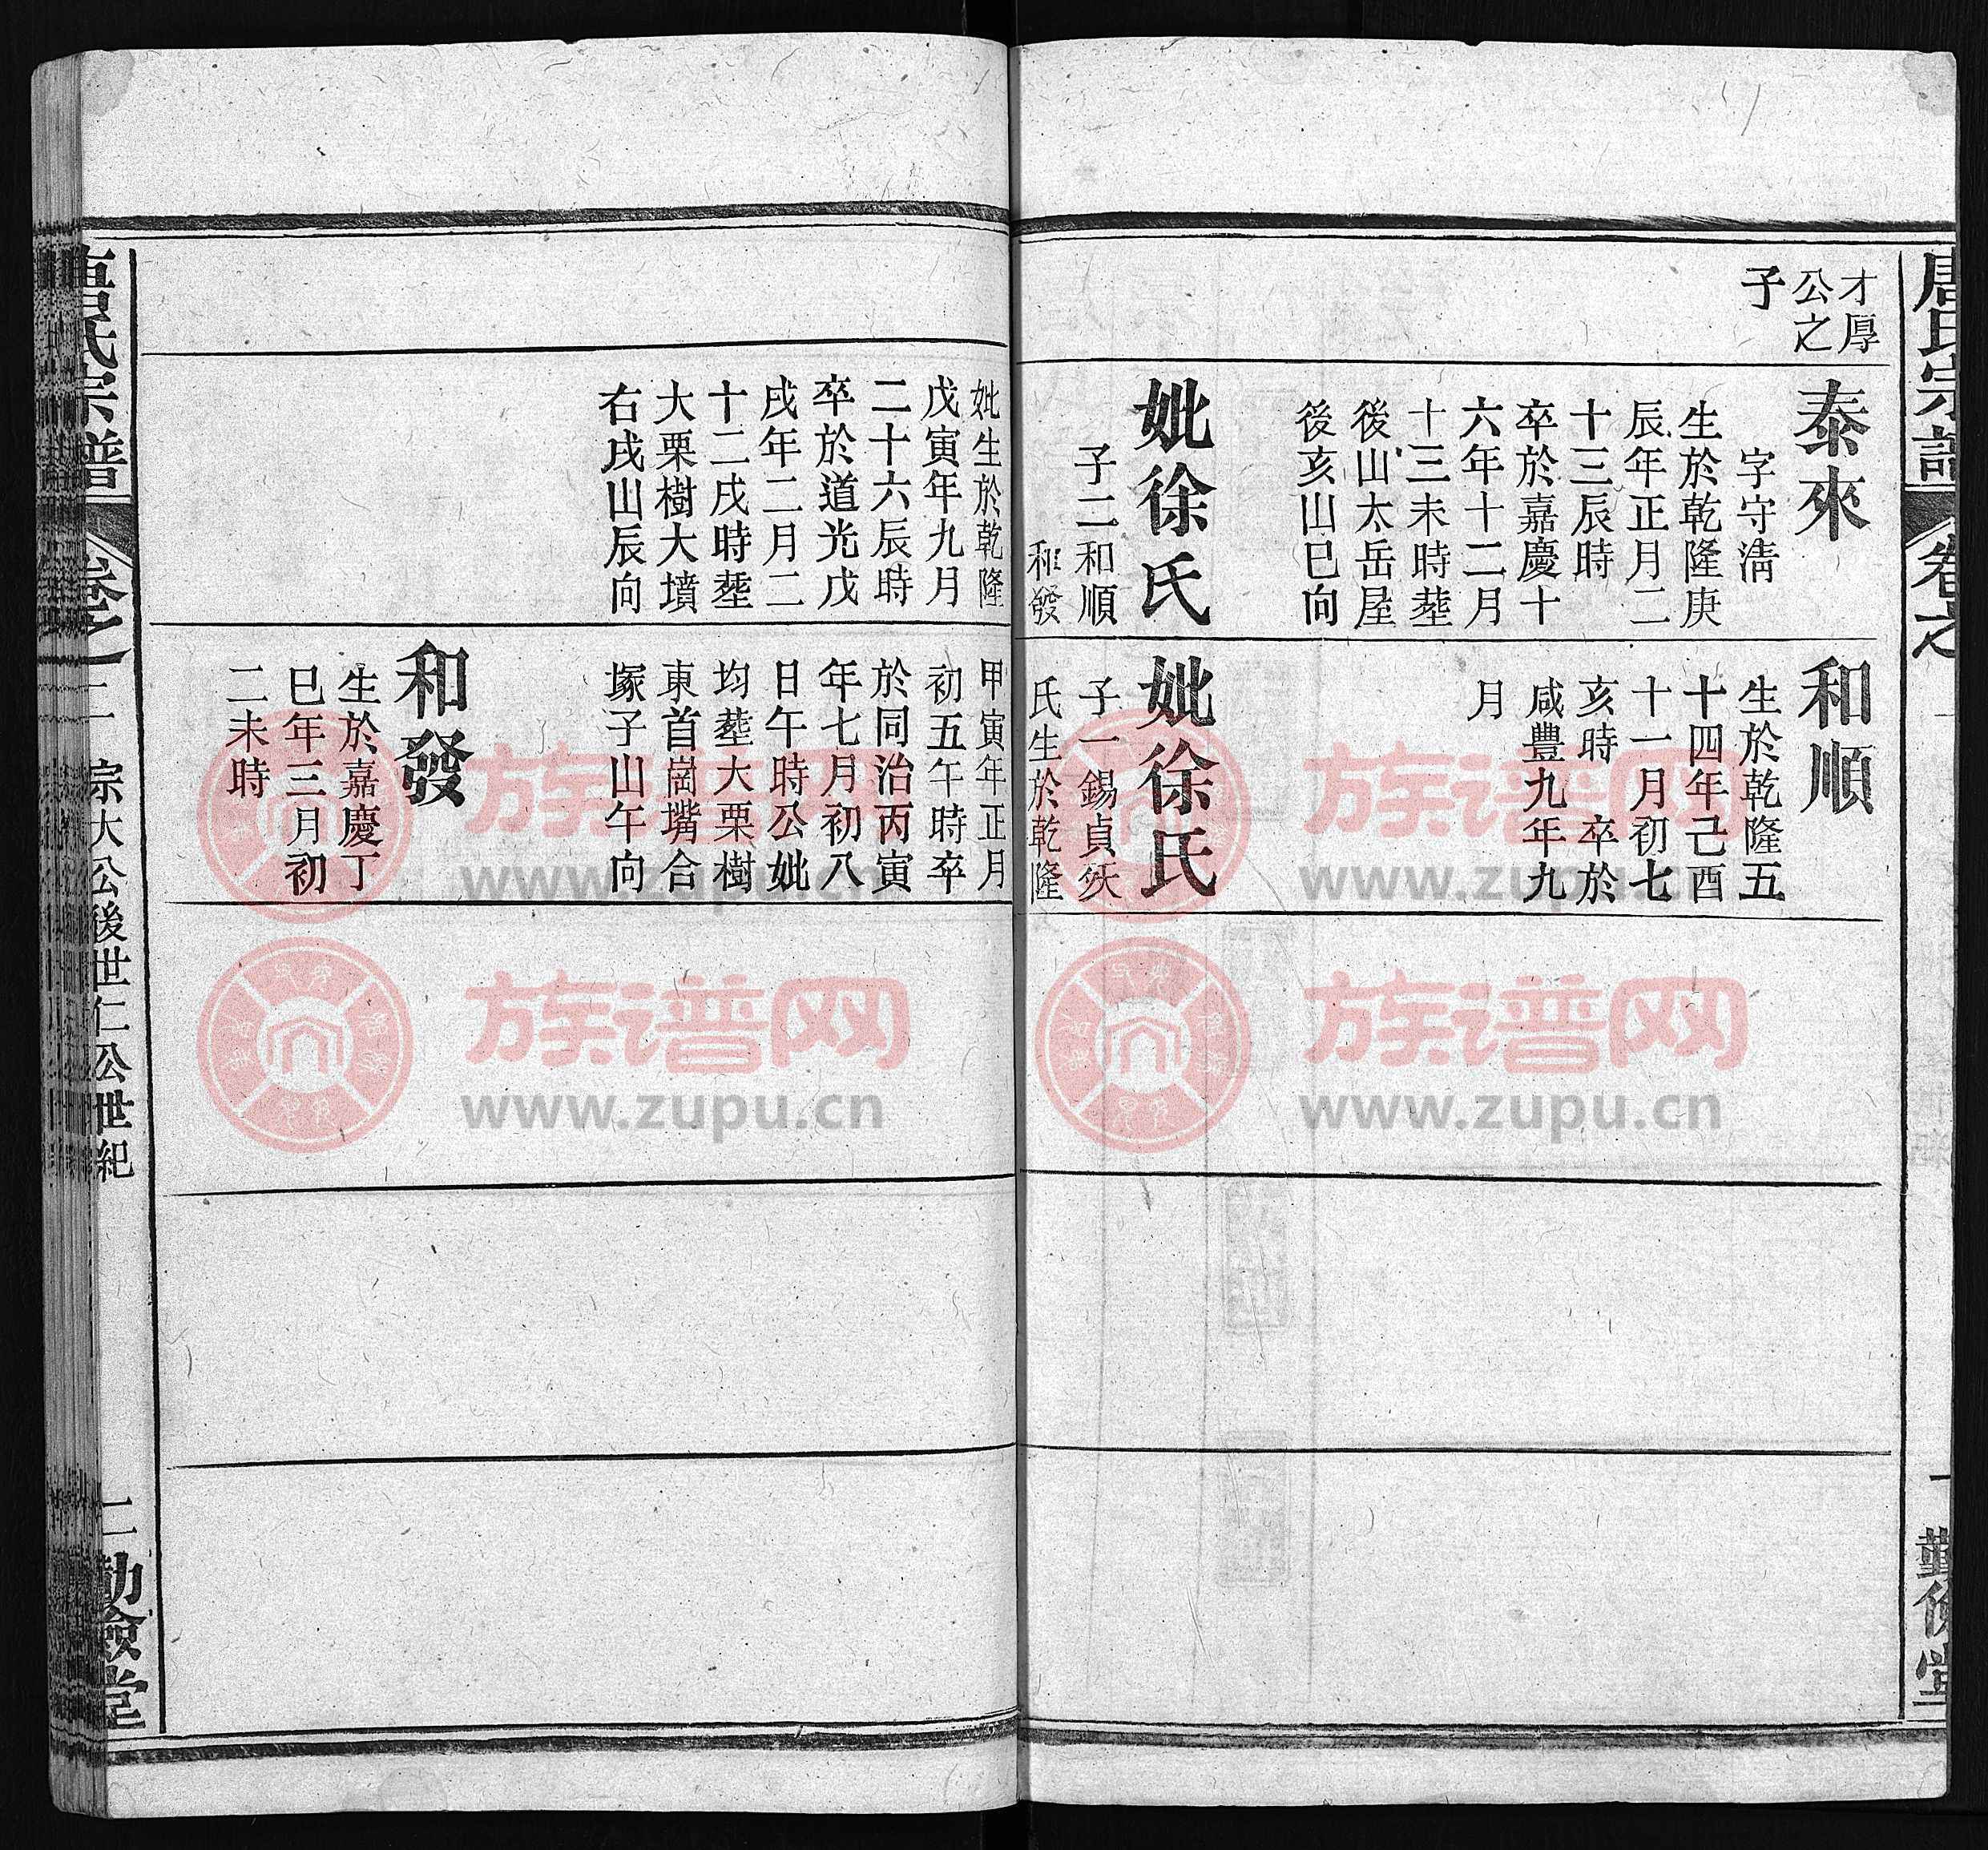 唐氏宗譜
卷之
一
勤儉堂
才厚
公之
子
泰來
字守淸
生於乾隆庚
辰年正月二
十三辰時
卒於嘉慶十
六年十二月
十三未時塟
後山太岳屋
後亥山巳向
妣徐氏
子二和順
和發
和順
生於乾隆五
十四年己酉
十一月初七
亥時 卒於
咸豐九年九
月
妣徐氏
子一錫貞
氏生於乾隆
妣生於乾隆
戊寅年九月
二十六辰時
卒於道光戊
戌年二月二
十二戌時塟
大栗樹大墳
右戌山辰向
甲寅年正月
初五午時卒
於同治丙寅
年七月初八
日午時公妣
均塟大栗樹
東首崗嘴合
塚子山午向
和發
生於嘉慶丁
巳年三月初
二未時
唐氏宗譜
卷之二
宗大公後世仁公世紀
二
勤儉堂
族谱网
www.zupu.cn
族谱网
www.zupu.cn
族谱网
www.zupu.cn
族谱网
www.zupu.cn